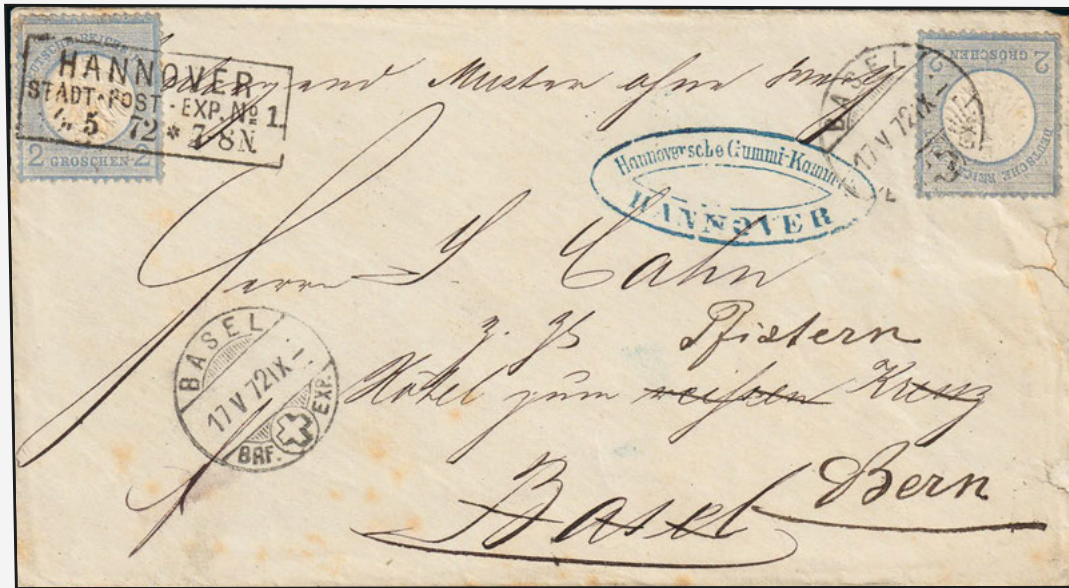 DEUTSCHE REICHS
2 GROSCHEN 2
HANNOVER
STADT-POST-EXP. No 1.
5 72 * 7-8N.
Muster ohne
BASEL
17 V 72 IX -
EXP.
2 GROSCHEN 2
DEUTSCHE REICHS
Hannoversche Gummi-Kamm
HANNOVER
Herrn S Cahn
z. Zt Pfistern
Hôtel zum weißen Kreuz
BASEL
17 V 72 IX -
BRF. EXP.
Basel Bern